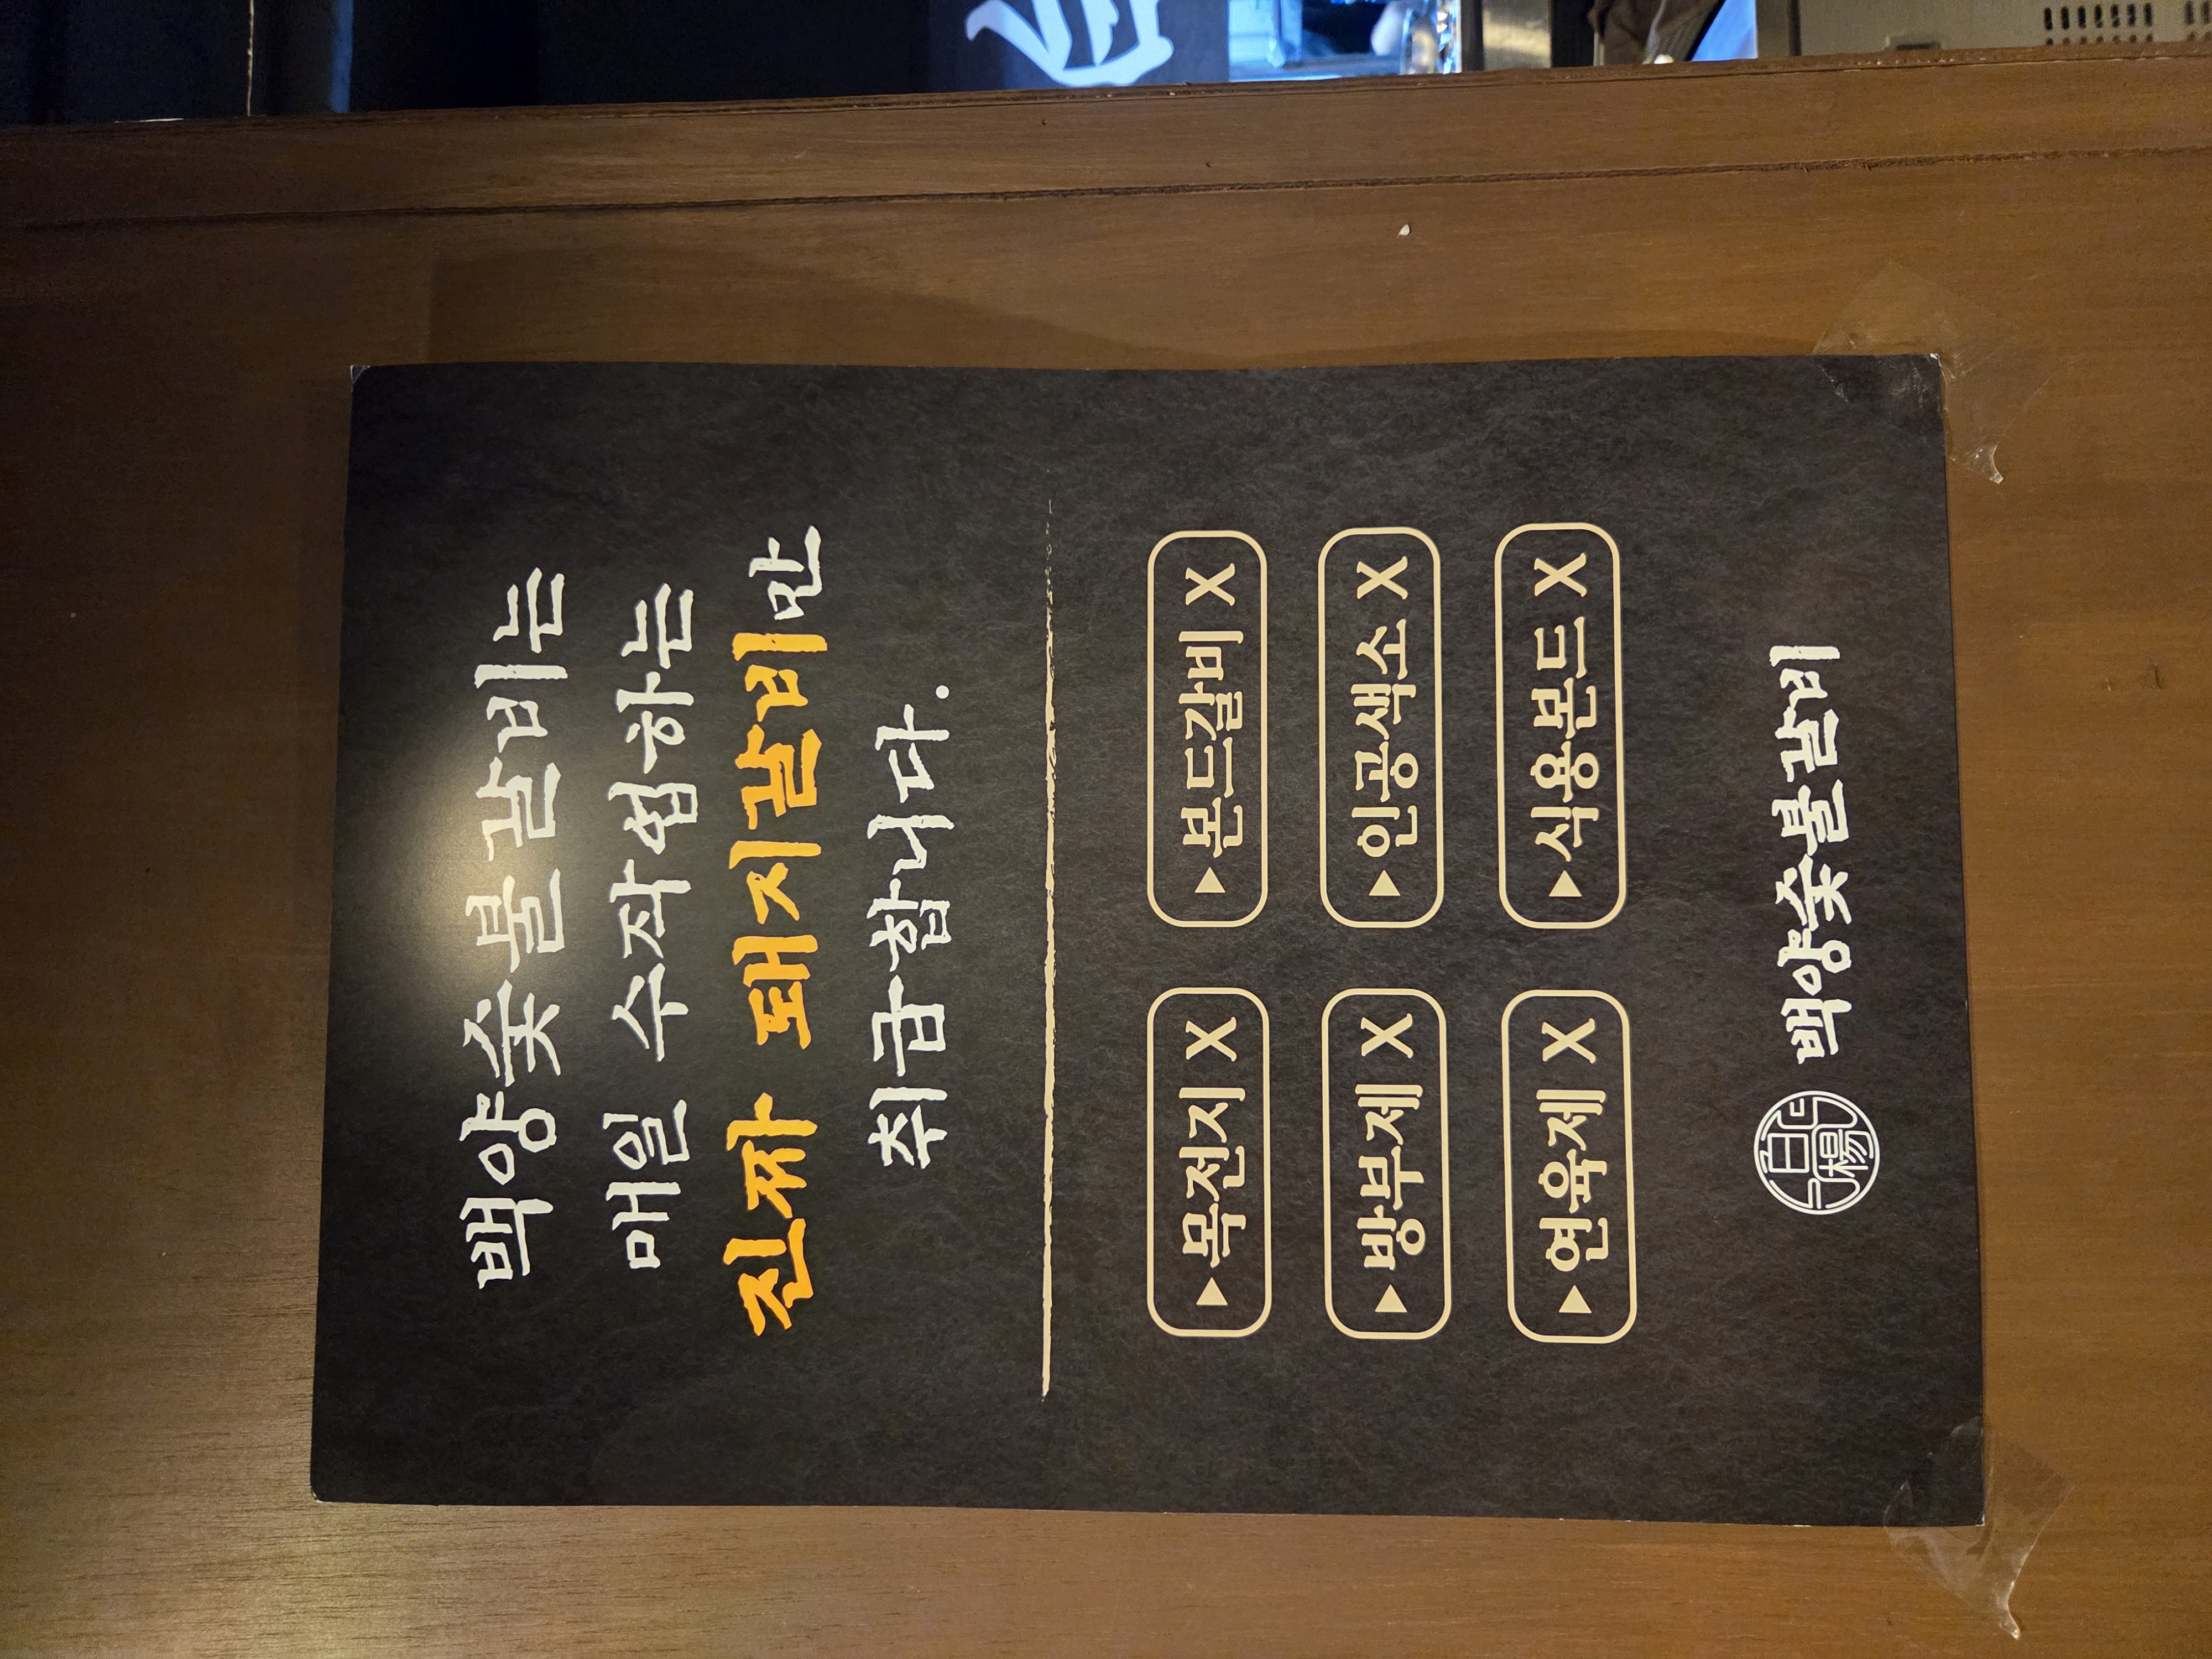 백양숯불갈비는
매일 수작업하는
진짜 돼지갈비만
취급합니다.
▶목전지 X ▶본드갈비 X
▶방부제 X ▶인공색소 X
▶연육제 X ▶식용본드 X
白楊 백양숯불갈비